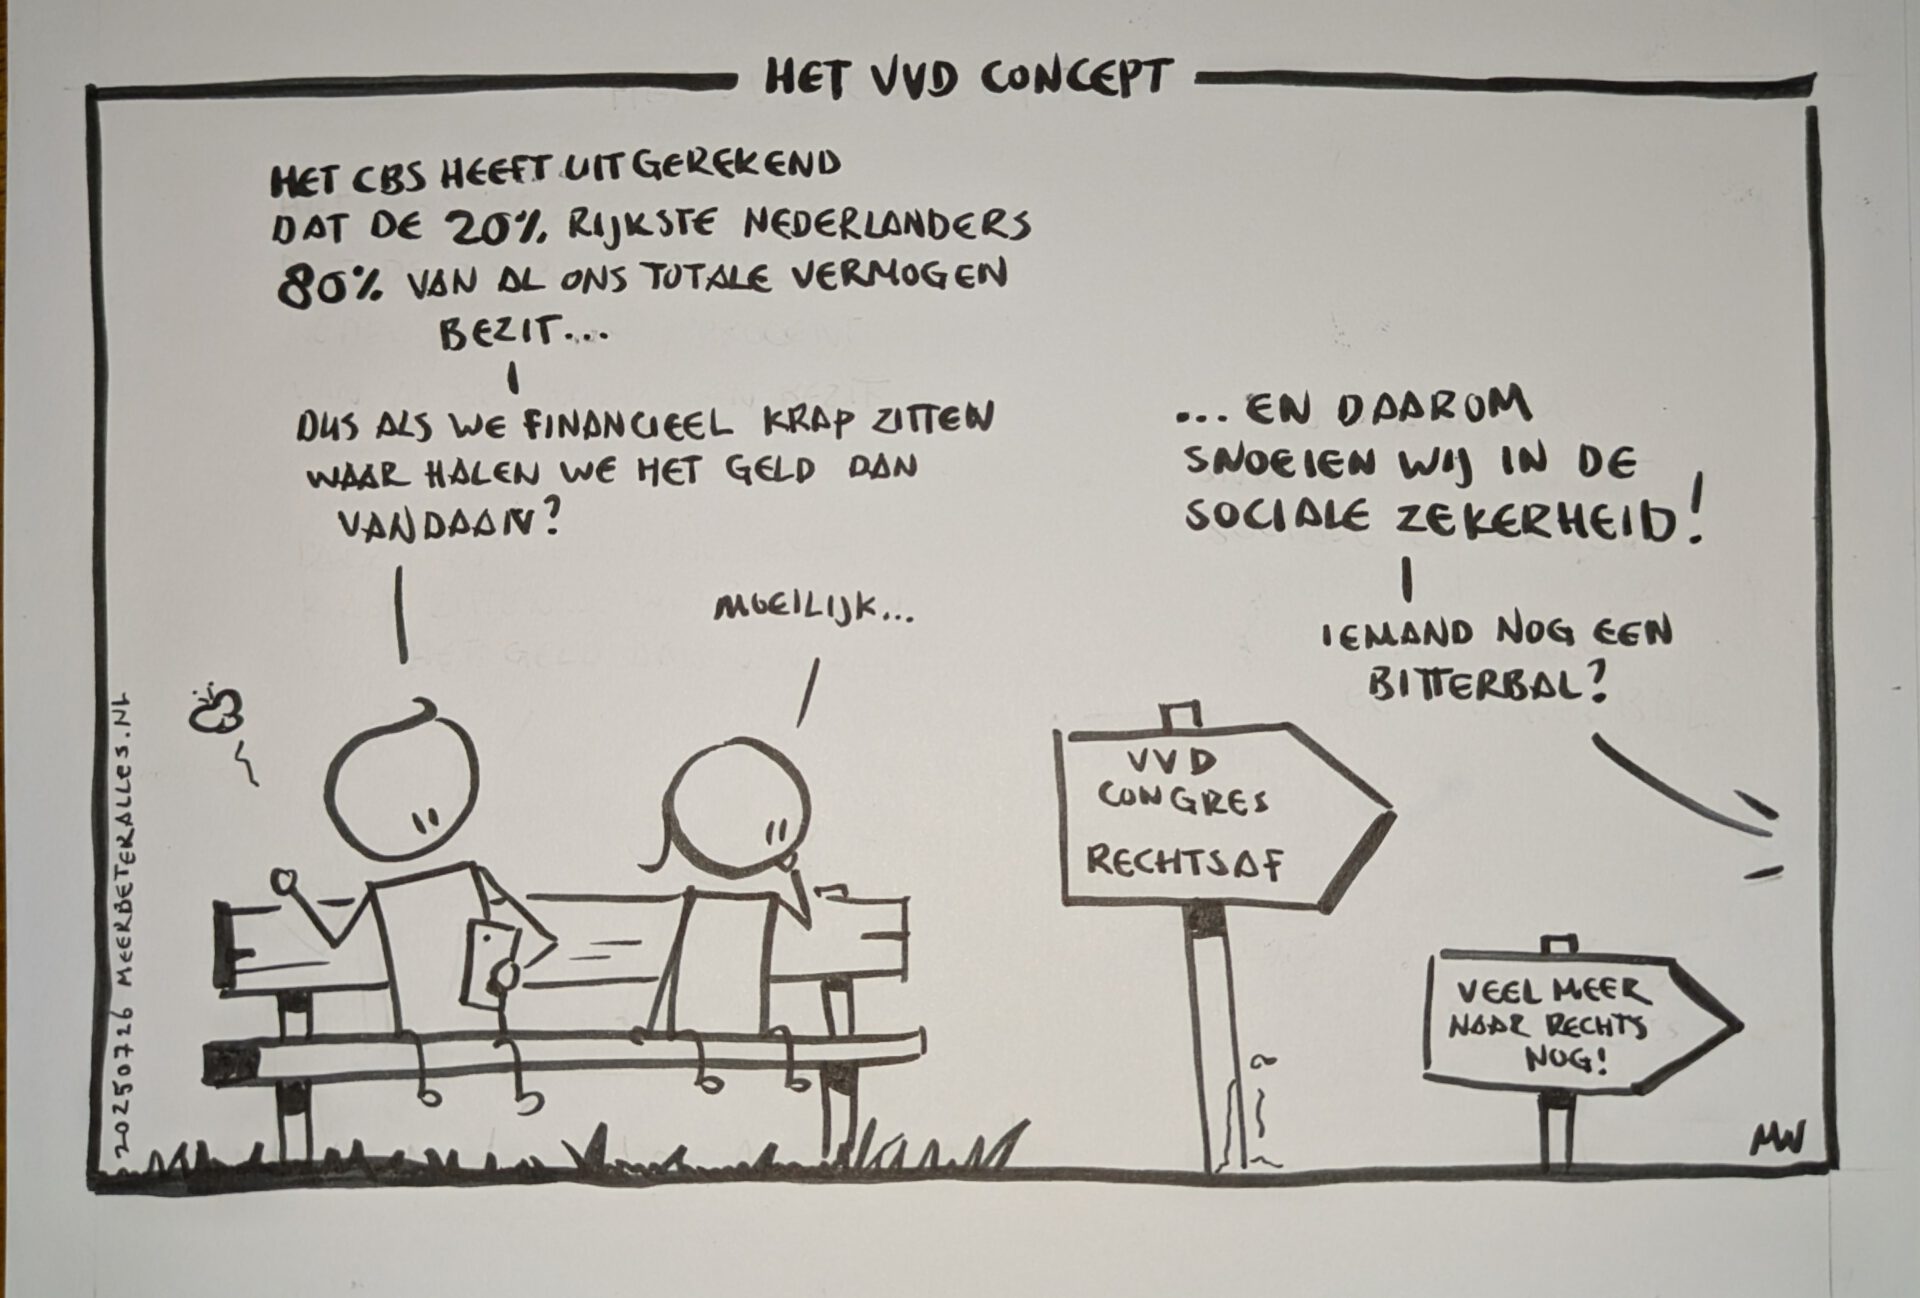 HET VVD CONCEPT
HET CBS HEEFT UITGEREKEND
DAT DE 20% RIJKSTE NEDERLANDERS
80% VAN AL ONS TOTALE VERMOGEN
BEZIT...
DUS ALS WE FINANCIEEL KRAP ZITTEN
WAAR HALEN WE HET GELD DAN
VANDAAN?
MOEILIJK...
... EN DAAROM
SNOEIEN WIJ IN DE
SOCIALE ZEKERHEID!
IEMAND NOG EEN
BITTERBAL?
VVD
CONGRES
RECHTSAF
VEEL MEER
NAAR RECHTS
NOG!
20250726 MEERBETERALLES.NL
MW